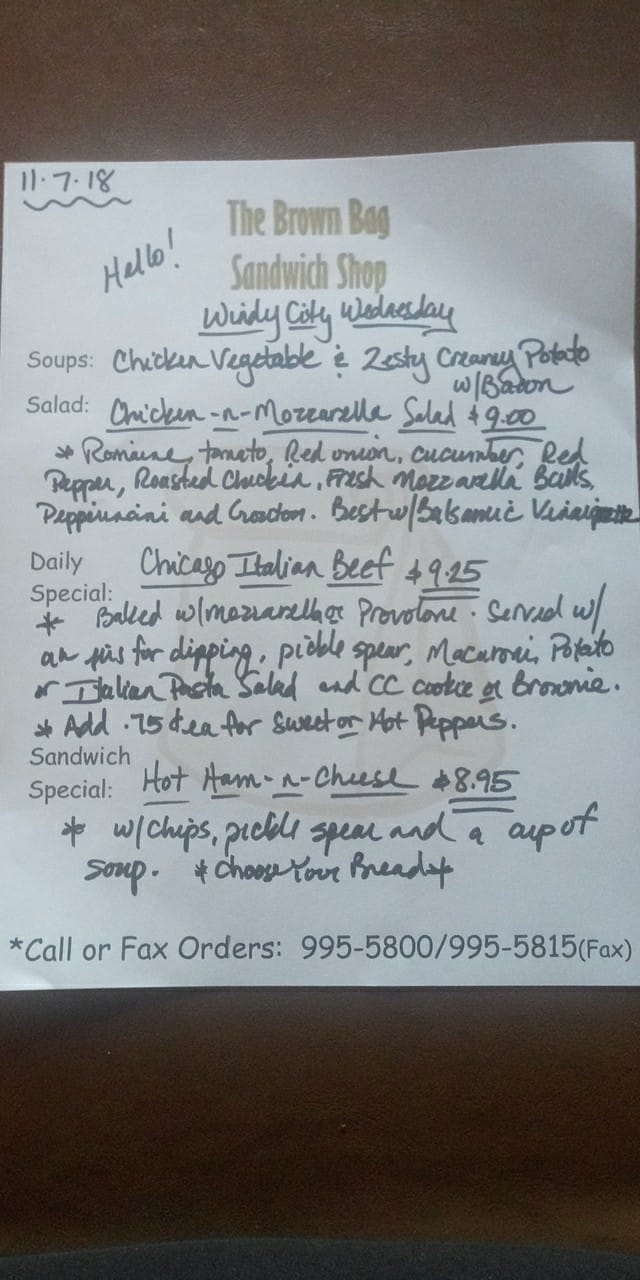 11.7.18
Hello!
The Brown Bag
Sandwich Shop
Windy City Wednesday
Soups: Chicken Vegetable & Zesty Creamy Potato
w/Bacon
Salad: Chicken-n-Mozzarella Salad $9.00
* Romaine, tomato, Red onion, cucumber, Red
Pepper, Roasted Chicken, Fresh Mozzarella Balls,
and Crouton. Best w/Balsamic Vinaigrette
Daily
Special: Chicago Italian Beef $9.25
* Baked w/mozzarella or Provolone. Served w/
au jus for dipping, pickle spear, Macaroni, Potato
or Italian Pasta Salad and CC cookie or Brownie.
* Add .75¢ ea for Sweet or Hot Peppers.
Sandwich
Special: Hot Ham-n-Cheese $8.95
* w/chips, pickle spear and a cup of
soup. *Choose Your Bread*
*Call or Fax Orders: 995-5800/995-5815(Fax)